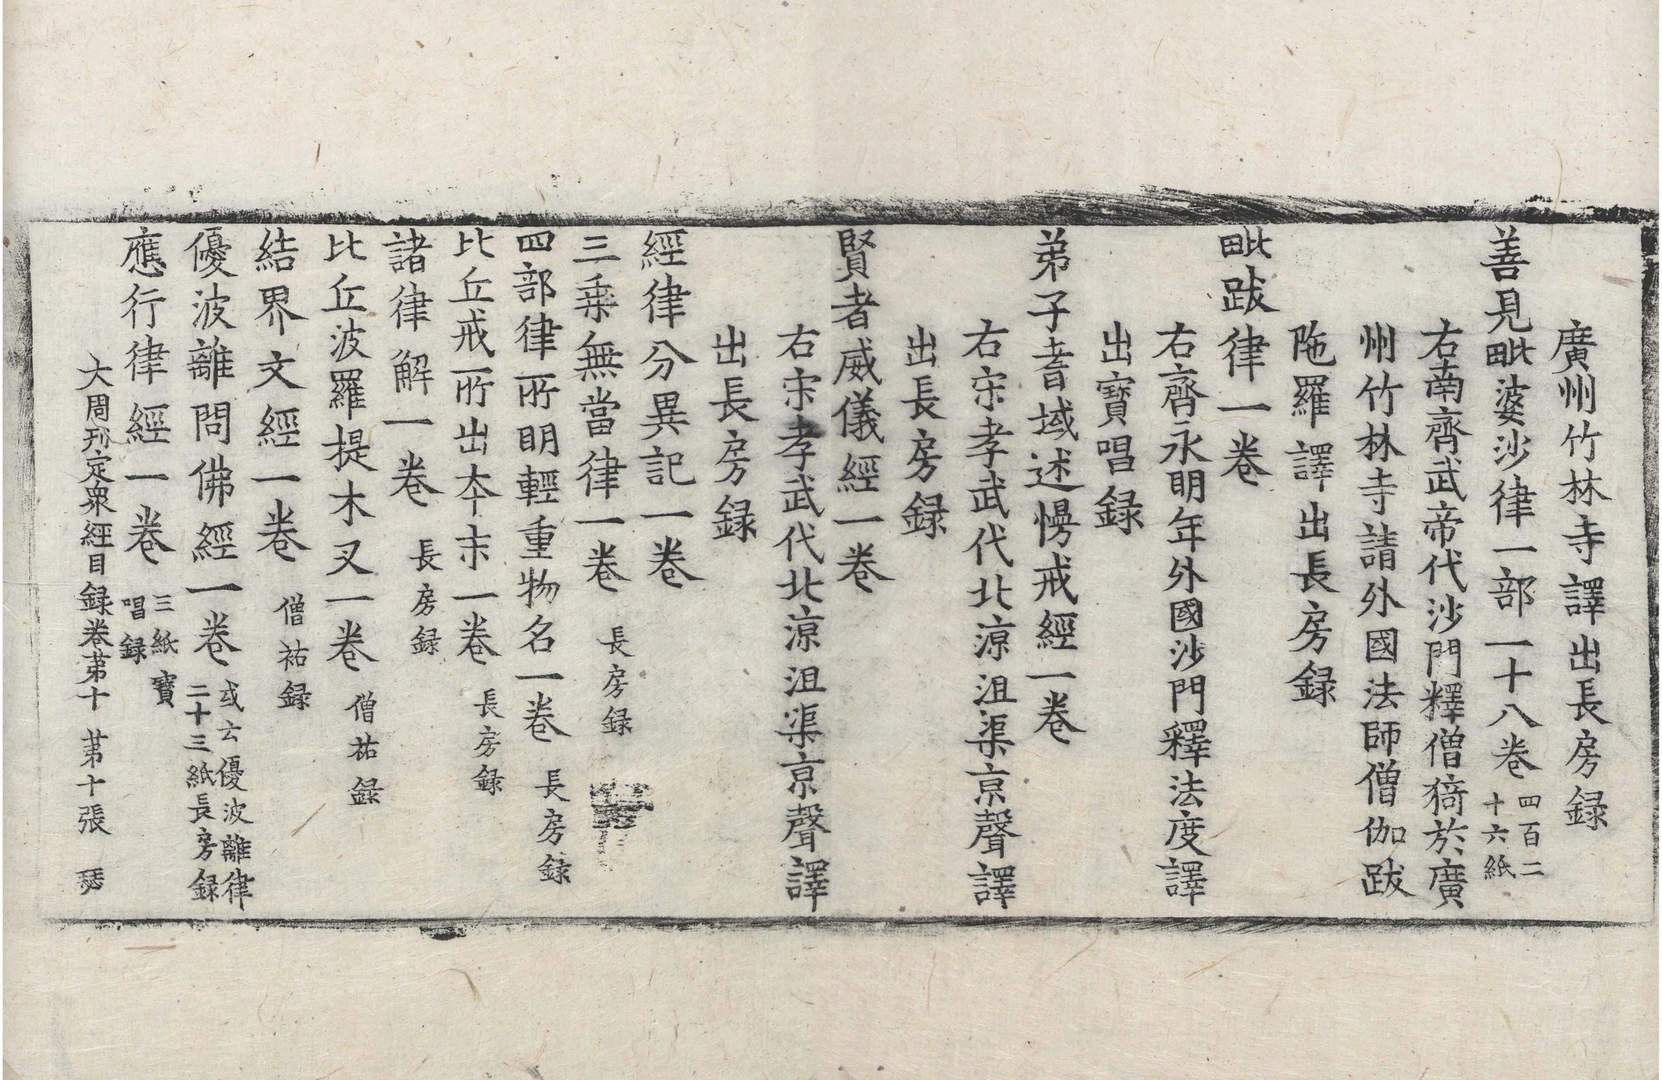 廣州竹林寺譯出長房録
善見毗婆沙律一部一十八卷 四百二十六紙
右南齊武帝代沙門釋僧猗於廣
州竹林寺請外國法師僧伽跋
陁羅譯出長房録
毗跋律一卷
右齊永明年外國沙門釋法度譯
出寶唱録
弟子耆域述慢戒經一卷
右宋孝武代北涼沮渠京聲譯
出長房録
賢者威儀經一卷
右宋孝武代北涼沮渠京聲譯
出長房録
經律分異記一卷
三乗無當律一卷 長房録
四部律所明輕重物名一卷 長房録
比丘戒所出夲末一卷 長房録
諸律解一卷 長房録
比丘波羅提木叉一卷 僧祐録
結界文經一卷 僧祐録
優波離問佛經一卷 或云優波離律二十三紙長房録
應行律經一卷 三紙寶唱録
大周刋定衆經目録卷苐十 苐十張 瑟